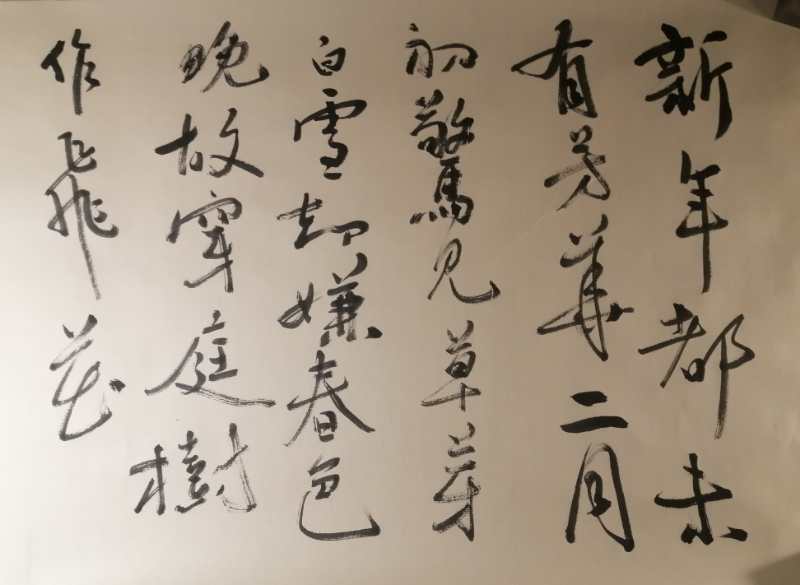 新年都未
有芳華二月
初驚見草芽
白雪却嫌春色
晚故穿庭樹
作飛花